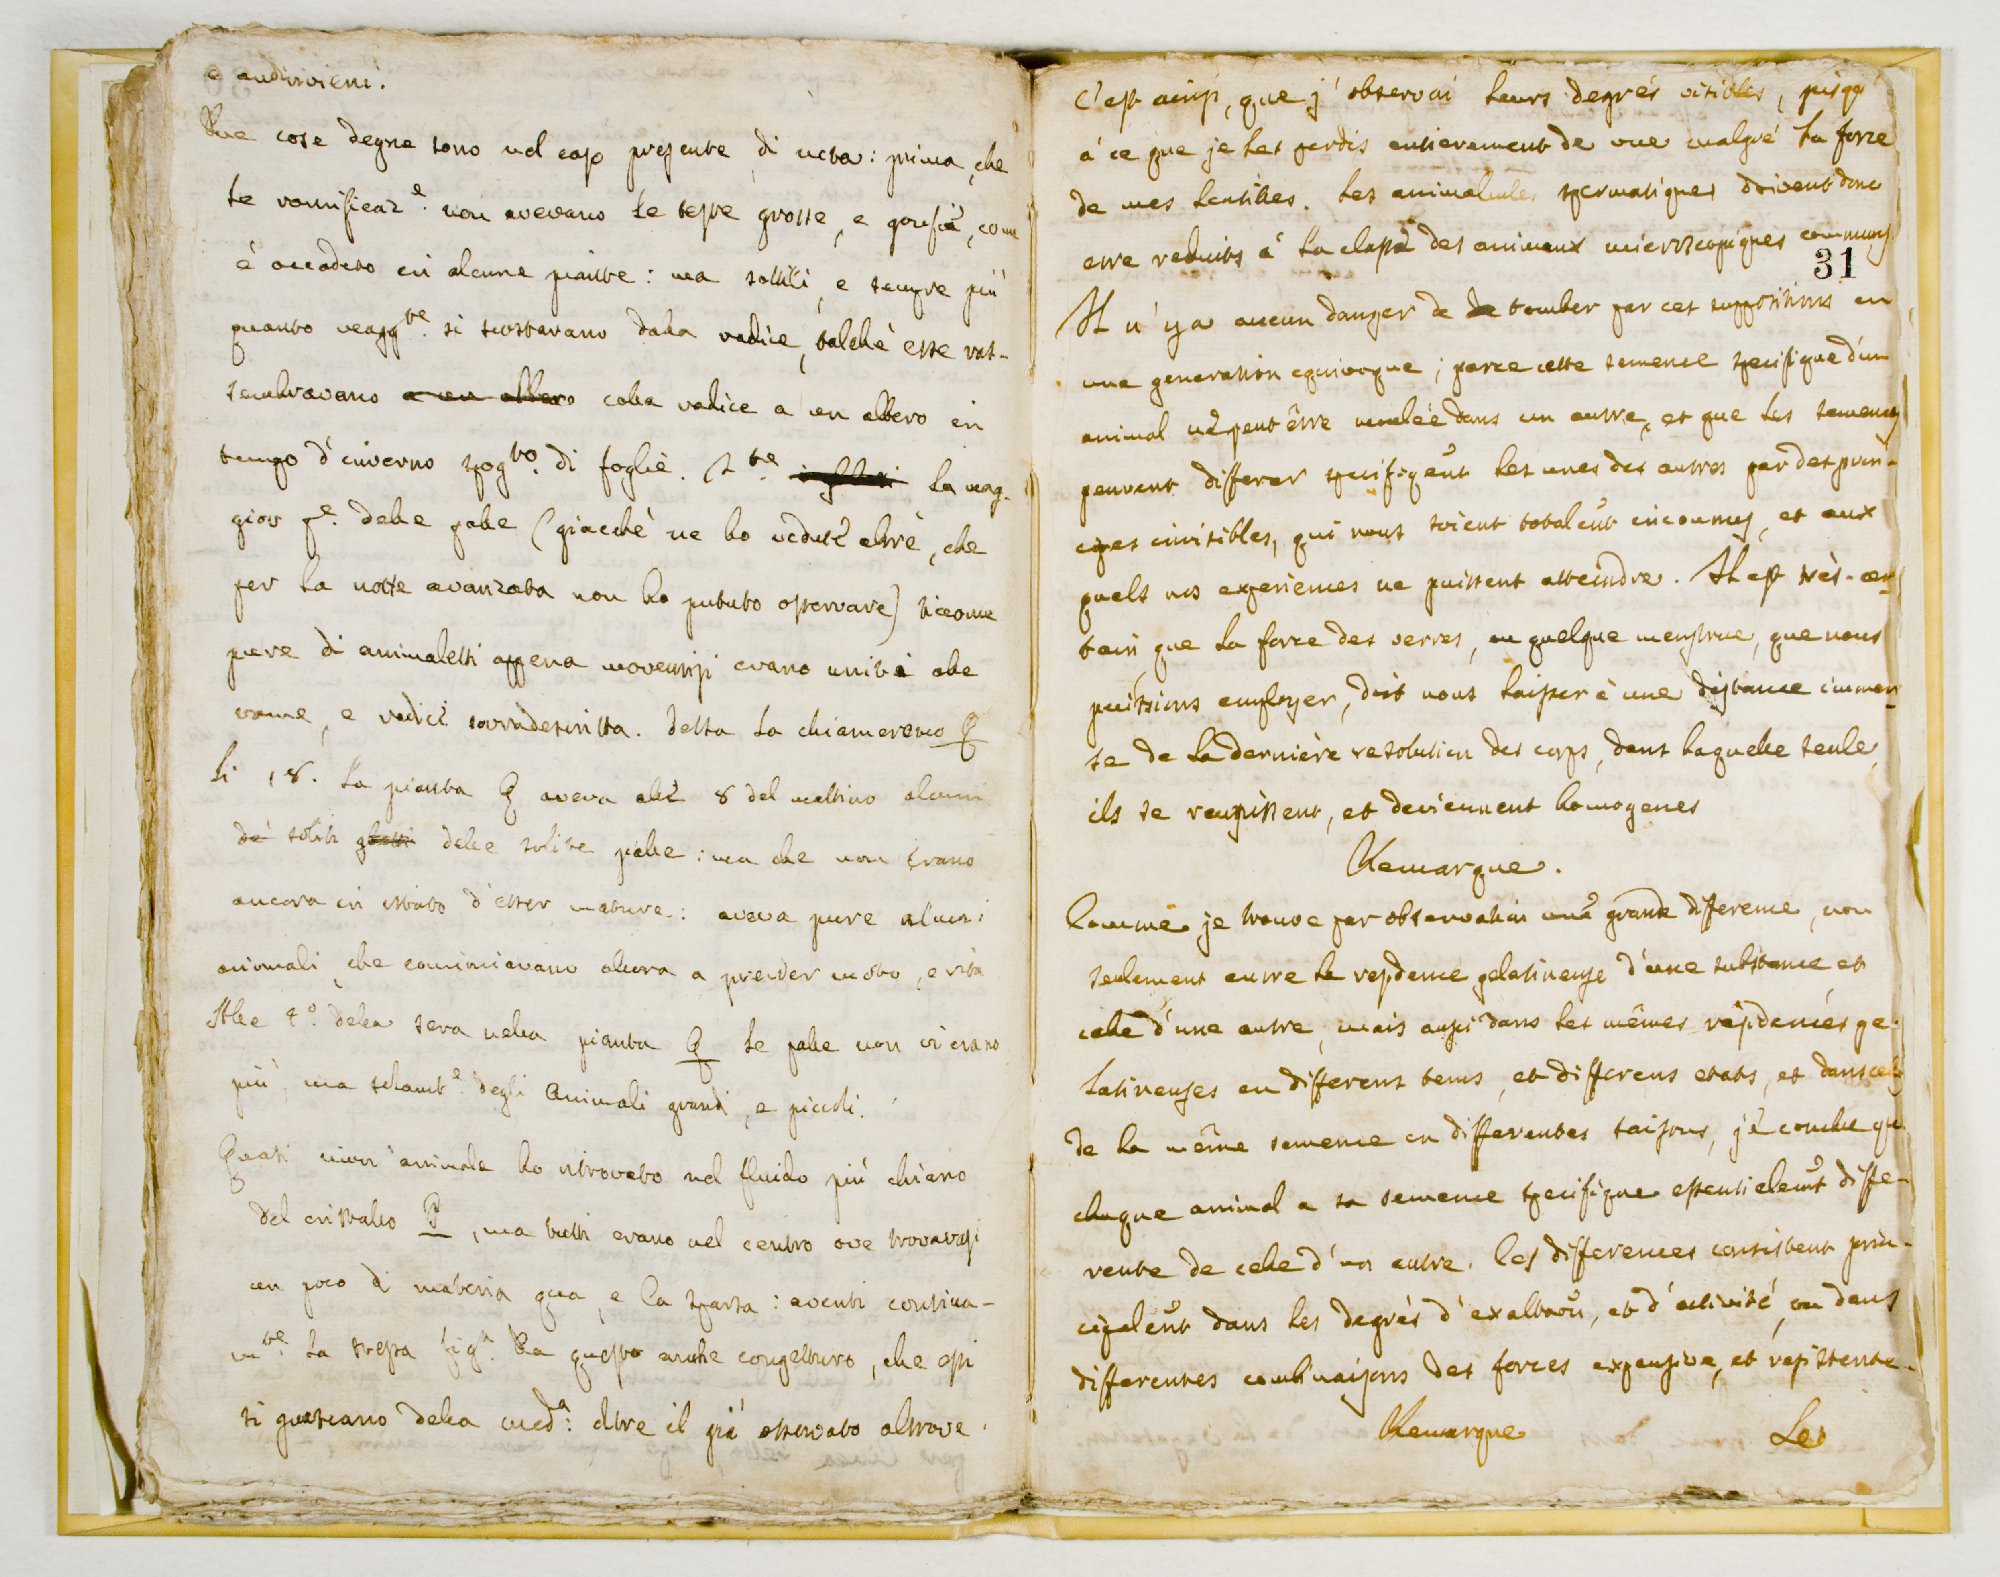 e andirivieni.
Due cose degne sono nel caso presente di nota: prima, che
le ramificaz.e non avevano le teste grosse, e gonfie, come
è accaduto in alcune piante: ma sottili, e sempre più
quanto magg.te si scostavano dalla radice, talchè esse ras-
sembravano a un albero colla radice a un albero in
tempo d'inverno spog.to di foglie. la mag-
gior p.e delle palle (giacchè ne ho vedute altre, che
per la notte avanzata non ho potuto osservare) siccome
pure di animaletti appena moventisi erano uniti alle
rame, e radici sovradescritta. Detta la chiameremo Q
li 18. La pianta Q aveva alle 8 del mattino alcuni
de' soliti delle solite palle: ma che non erano
ancora in istato d'esser mature: aveva pure alcuni
animali, che cominciavano allora a prender moto, e vita
Alle 4.o della sera nella pianta Q le palle non vi erano
più, ma solamt.e degli animali grandi, e piccoli.
Quasi niun animale ho ritrovato nel fluido più chiaro
del cristallo P, ma tutti erano nel centro ove trovavasi
un poco di materia qua, e la sparsa: aventi continua-
m.te la stessa fig.a Da questo anche congetturo, che essi
si gustano della med.a: oltre il già osservato altrove.
C'est ainsi, que j'observai leurs degrés visibles, jusqu'
à ce que je les perdis entierement de vue malgré la force
de mes lentilles. Les animalcules spermatiques doivent donc
etre reduits à la classe des animaux microscopiques communs.
31
Il n'y a aucun danger de tomber par ces suppositions en
une generation equivoque; parce cette semence specifique d'un
animal ne peut être moulée dans un autre, et que les semences
peuvent differer specifiqeut les unes des autres par des prin-
cipes invisibles, qui nous soient totaleut inconnus, et aux
quels nos experiences ne puissent atteindre. Il est très-cer-
tain que la force des verres, ou quelque menstrue, que nous
puissions employer, doit nous laisser à une distance immen-
se de la dernière resolution des corps, dans laquelle seule
ils se reunissent, et deviennent homogenes
Remarque.
Comme je trouve par observation une grande difference, non
seulement entre la residence gelatineuse d'une substance et
celle d'une autre, mais aussi dans les mêmes residences ge-
latineuses en different tems, et differens etats, et dans celle
de la même semence en differentes saisons, je conclue que
chaque animal a sa semence specifique essentielemt diffe-
rente de celle d'un autre. Ces differences consistent prin-
cipaleut dans les degrés d'exaltaõn, et d'activité, ou dans
differentes combinaisons des forces expensive, et resistente
Remarque Les